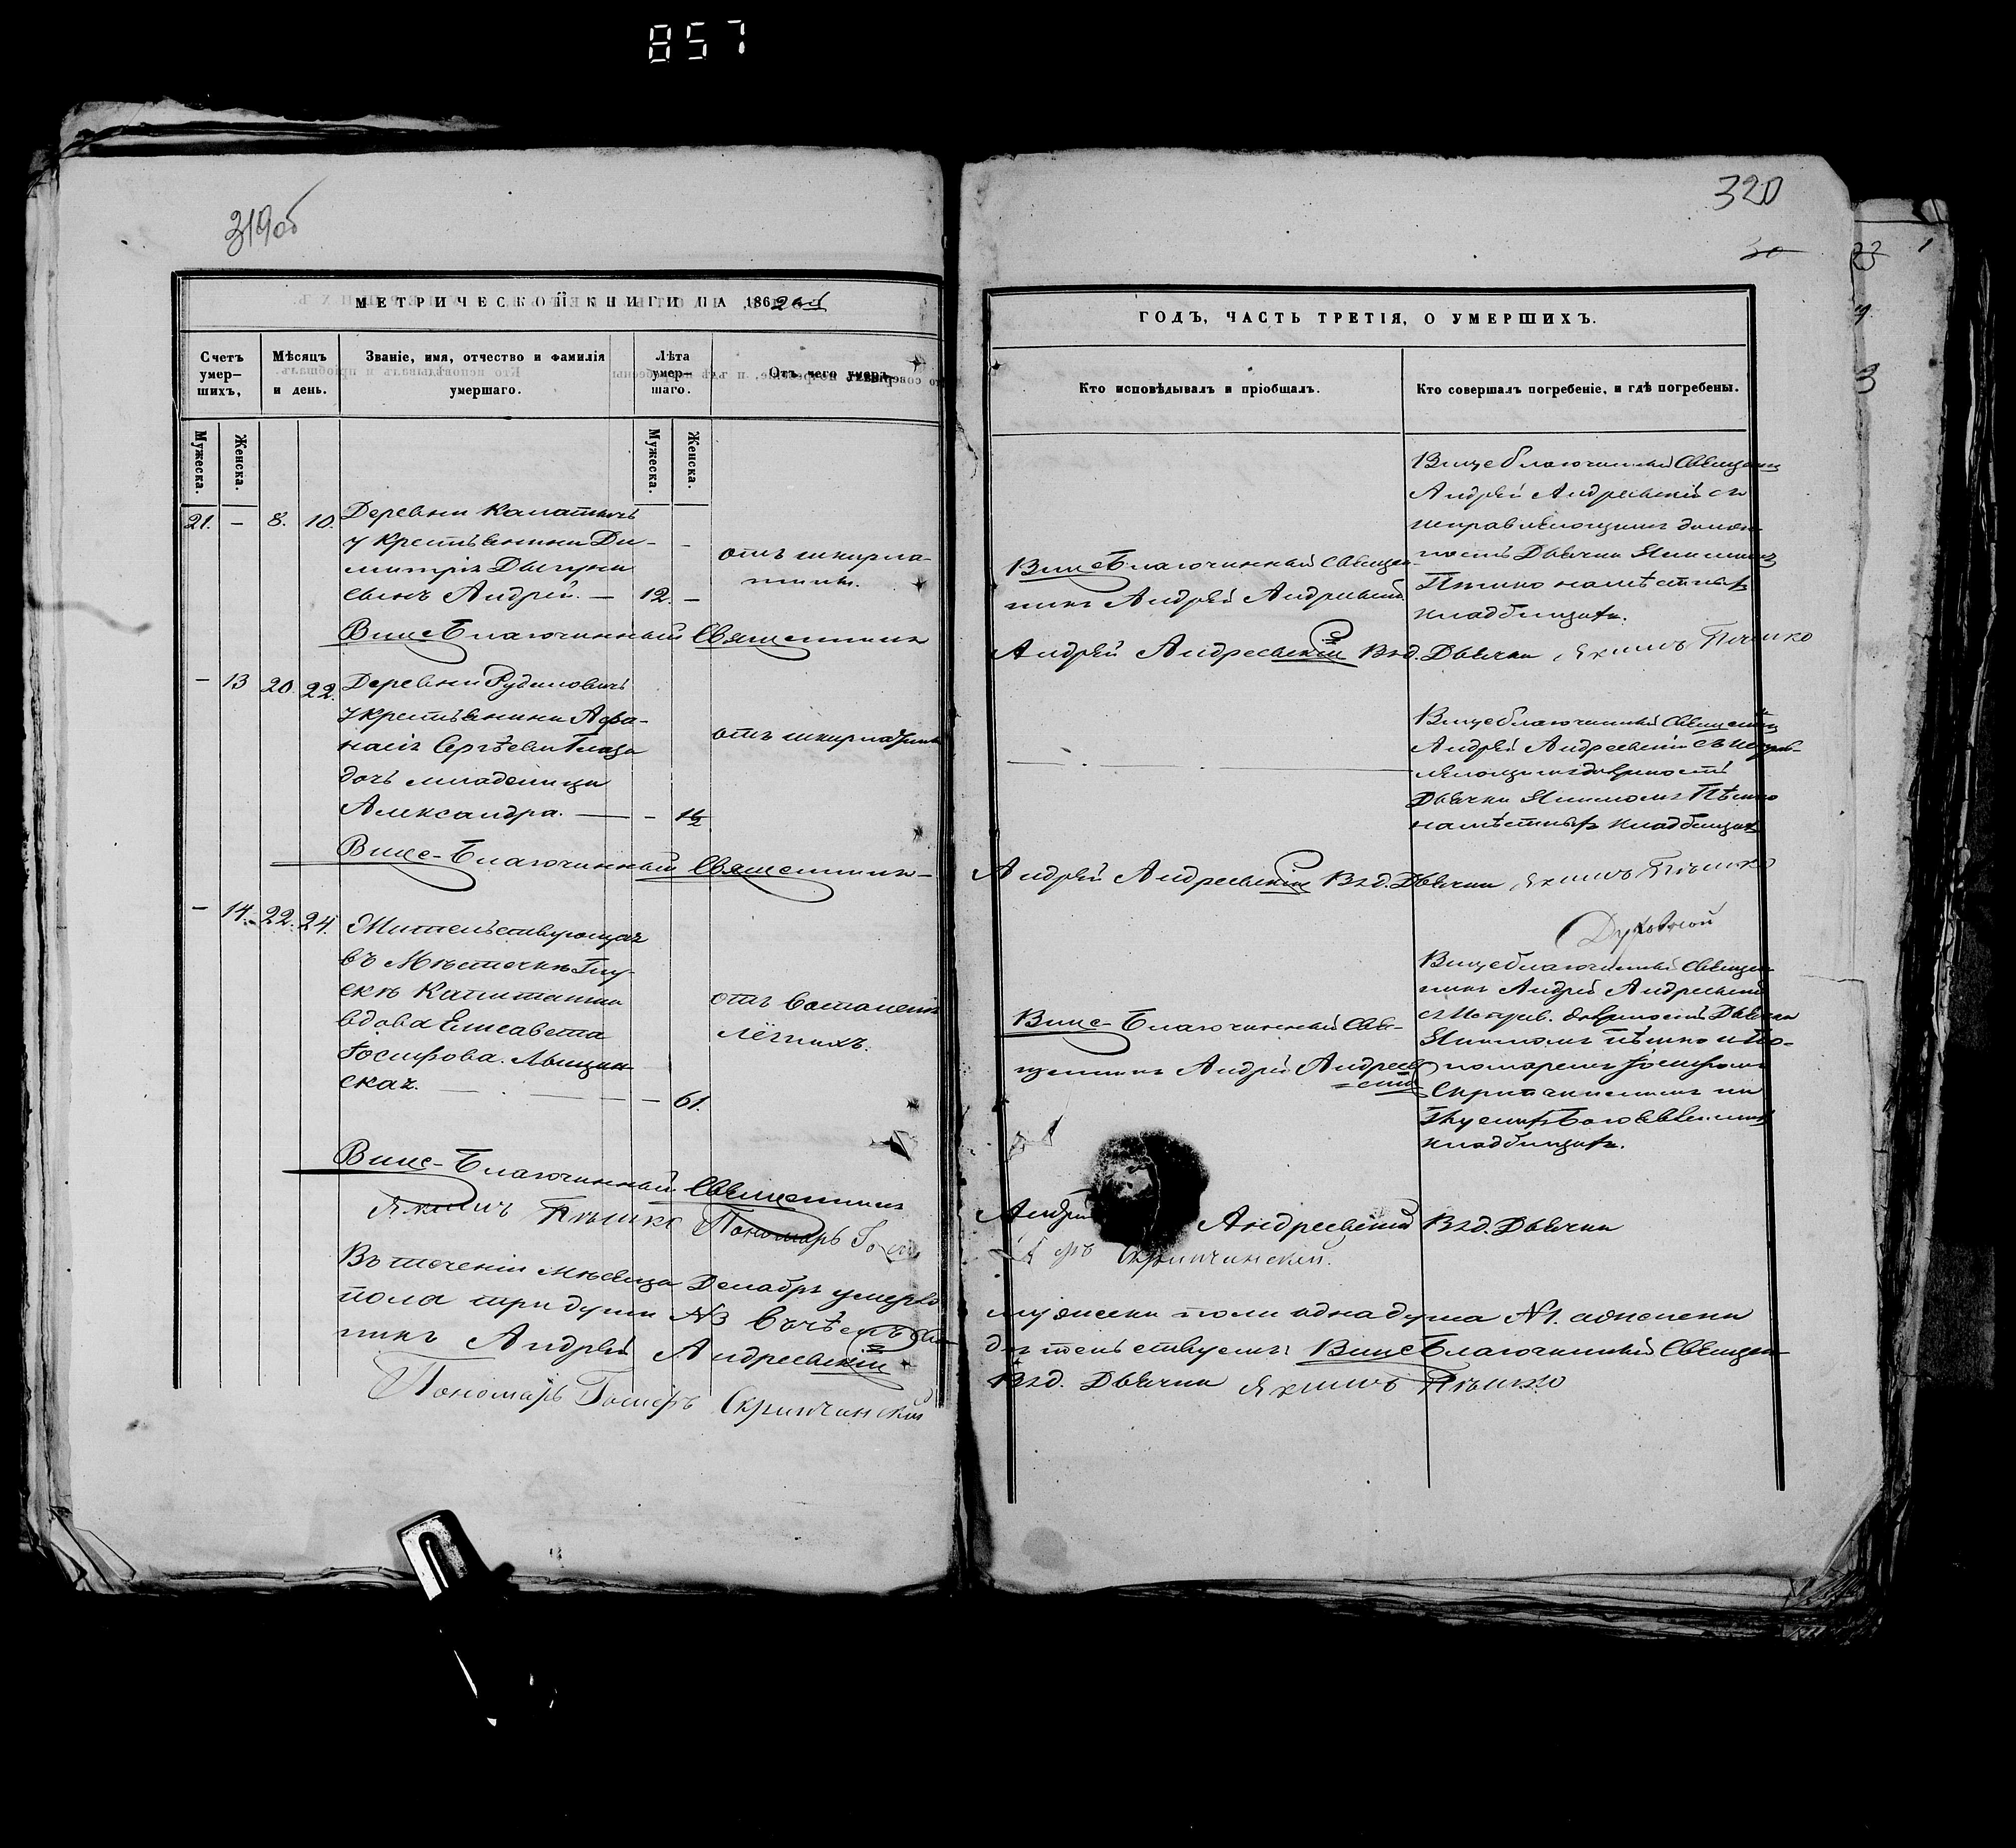 857
319об
МЕТРИЧЕСКОЙ КНИГИ НА 1862ой
Счетъ умер-шихъ,
Мѣсяцъ и день.
Званіе, имя, отчество и фамилія умершаго.
Лѣта умер-шаго.
Отъ чего умеръ.
Мужеска.
Женска.
Мужеска.
Женска.
21. – 8. 10. Деревни
у крестьянина Ди-
митрія
сынъ Андрей. — 12. –
отъ шкарла-
тины.
Вице-Благочинный Священникъ
– 13 20. 22. Деревни
у крестьянина Афа-
насія Сергѣева
дочь младеница
Александра. — – 1½
отъ
Вице-Благочинный Священникъ
– 14. 22. 24. Жительствующая
въ Мѣстечкѣ Глу-
скѣ
вдова Елисавета
Іосифова.
ская. — 61.
отъ воспаленія
лёгкихъ.
Вице-Благочинный Священникъ
Якимъ Пѣшко Пономарь
Въ теченіи мѣсяца Декабря умерло
пола три души №3 въ чемъ
никъ Андрей Андреевскій
Пономарь Іосифъ Скрипчинскій
320
30
23
ГОДЪ, ЧАСТЬ ТРЕТІЯ, О УМЕРШИХЪ.
Кто исповѣдывалъ и пріобщалъ.
Кто совершалъ погребеніе, и гдѣ погребены.
Вице-Благочинный Священ-
никъ Андрей Андреевскій
Вице благочинный Священникъ
Андрей Андреевскій съ
исправляющимъ долж-
ность Дьячка Якимомъ
Пѣшко на мѣстномъ
кладбищѣ.
Андрей Андреевскій Взд. Дьячка Якимъ Пѣшко
Вице благочинный Священникъ
Андрей Андреевскій съ исправ-
ляющимъ должность
Дьячка Якимомъ Пѣшко
на мѣстномъ кладбищѣ
Андрей Андреевскій Взд. Дьячка Якимъ Пѣшко
Вице-Благочинный Свя-
щенникъ Андрей Андреев-
скій
Вице благочинный Священ-
никъ Андрей Андреевскій
съ исправ. должность Дьячка
Якимомъ Пѣшко и По-
номаремъ Іосифомъ
Скрипчинскимъ на
кладбищѣ.
Андрей Андреевскій Взд. Дьячка
Скрипчинскій.
мужеска пола одна душа №1. а женска
Вице Благочинный Священ-
Взд. Дьячка Якимъ Пѣшко